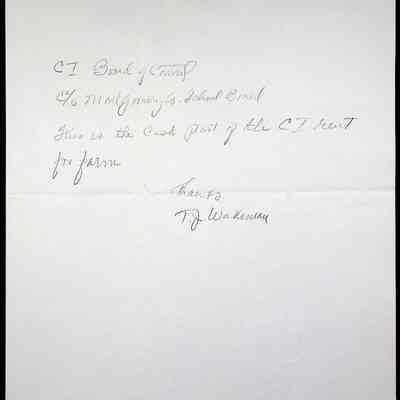 CI Board of Control
C/o Montgomery Co. School Board
Here is the Cash part of the CI rent
for farm
Thanks
T.J. Wakeman